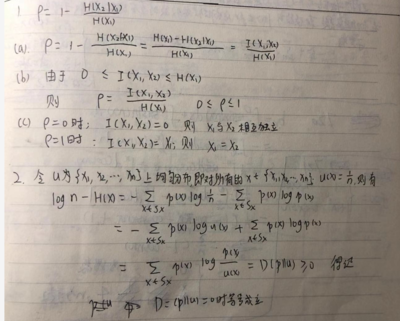 1. ρ = 1 - H(X₂|X₁)/H(X₁)
(a). ρ = 1 - H(X₂|X₁)/H(X₁) = H(X₁)-H(X₂|X₁)/H(X₁) = I(X₁;X₂)/H(X₁)
(b) 由于 0 ≤ I(X₁,X₂) ≤ H(X₁)
则 ρ = I(X₁,X₂)/H(X₁) 0≤ρ≤1
(c) ρ=0时: I(X₁,X₂)=0 则 X₁与X₂相互独立
ρ=1时: I(X₁,X₂)=X₁ 则 X₁=X₂
2. 令 u为{x₁,x₂,…,xₙ}上均匀分布即对所有的 x∈{x₁,x₂…,xₙ} u(x)=1/n, 则有
log n - H(X) = -∑x∈Sx p(x) log 1/n - ∑x∈Sx p(x) log p(x)
= -∑x∈Sx p(x) log u(x) + ∑x∈Sx p(x) log p(x)
= ∑x∈Sx p(x) log p(x)/u(x) = D(p||u) ≥ 0 得证
D=(p||u)=0时等号成立